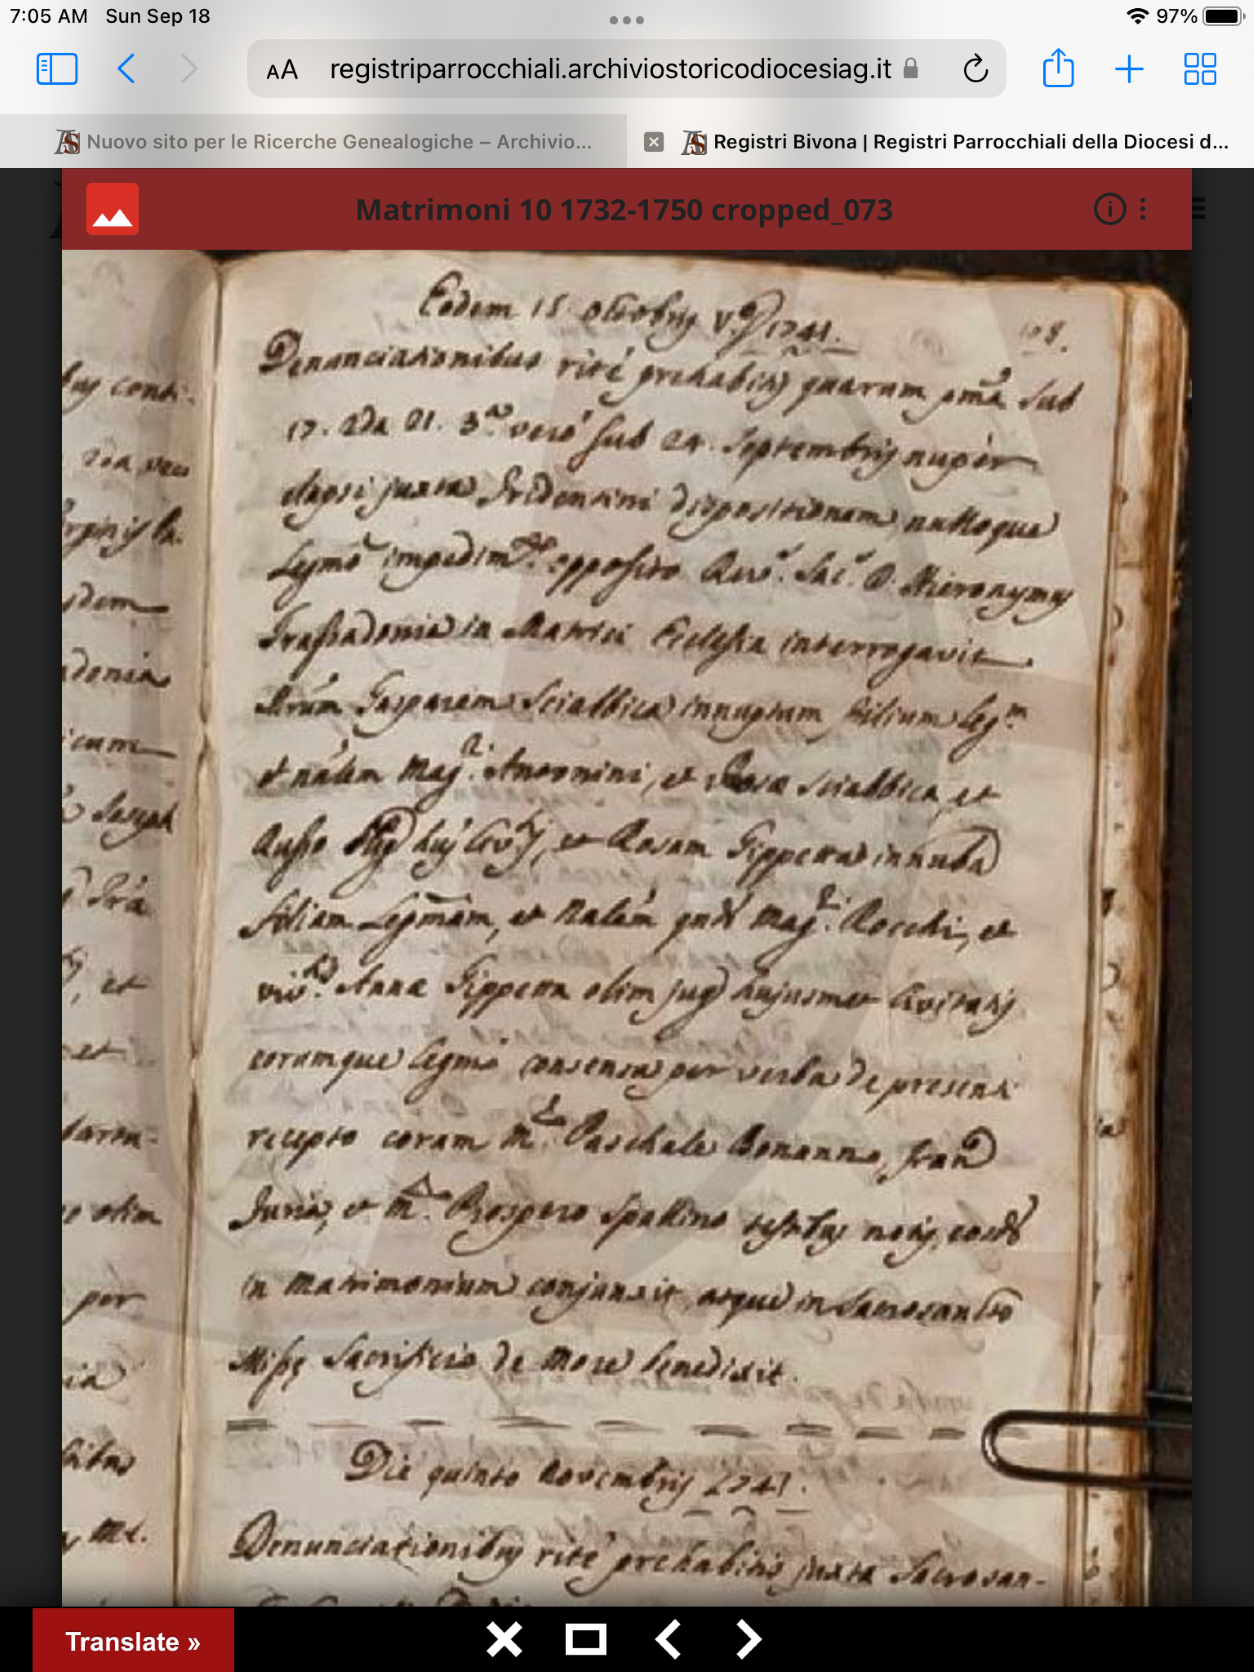 7:05 AM Sun Sep 18
97%
AA registriparrocchiali.archiviostoricodiocesiag.it
Nuovo sito per le Ricerche Genealogiche – Archivio...
Registri Bivona | Registri Parrocchiali della Diocesi d...
Matrimoni 10 1732-1750 cropped_073
Eodem 15 Octobris 1741.
Denunciationibus rite prehabitis quarum pma sub
17. 2da 21. 3a vero sub 24. Septembris nuper
elapsi juxta Tridentini dispositionem nulloque
Legmo impedimto opposito Revs. Sac. D. Hieronymus
in Matrici Ecclesia interrogavit
Gasparem Sciabbica innuptum filium legm
et nalem Magri Antonini, et Rosæ Sciabbica et
Russo, et Rosam Gippetta innubã
filiam Legmam, et Nalem qnd Magri Rocchi, et
viv. Annæ Gippetta olim jug hujusmet Civitatis
eorumque legmo consensu per verba de presenti
recepto coram Mro Paschale Bonanno, Franco
Juria, et Mro Prospero Spallino testibus notis, eosd
in Matrimonium conjunxit, atque in Sacrosancto
Missę Sacrificio de more benedixit.
Die quinto Novembris 1741.
Denunciationibus rite prehabitis juxta Sacrosan-
Translate »